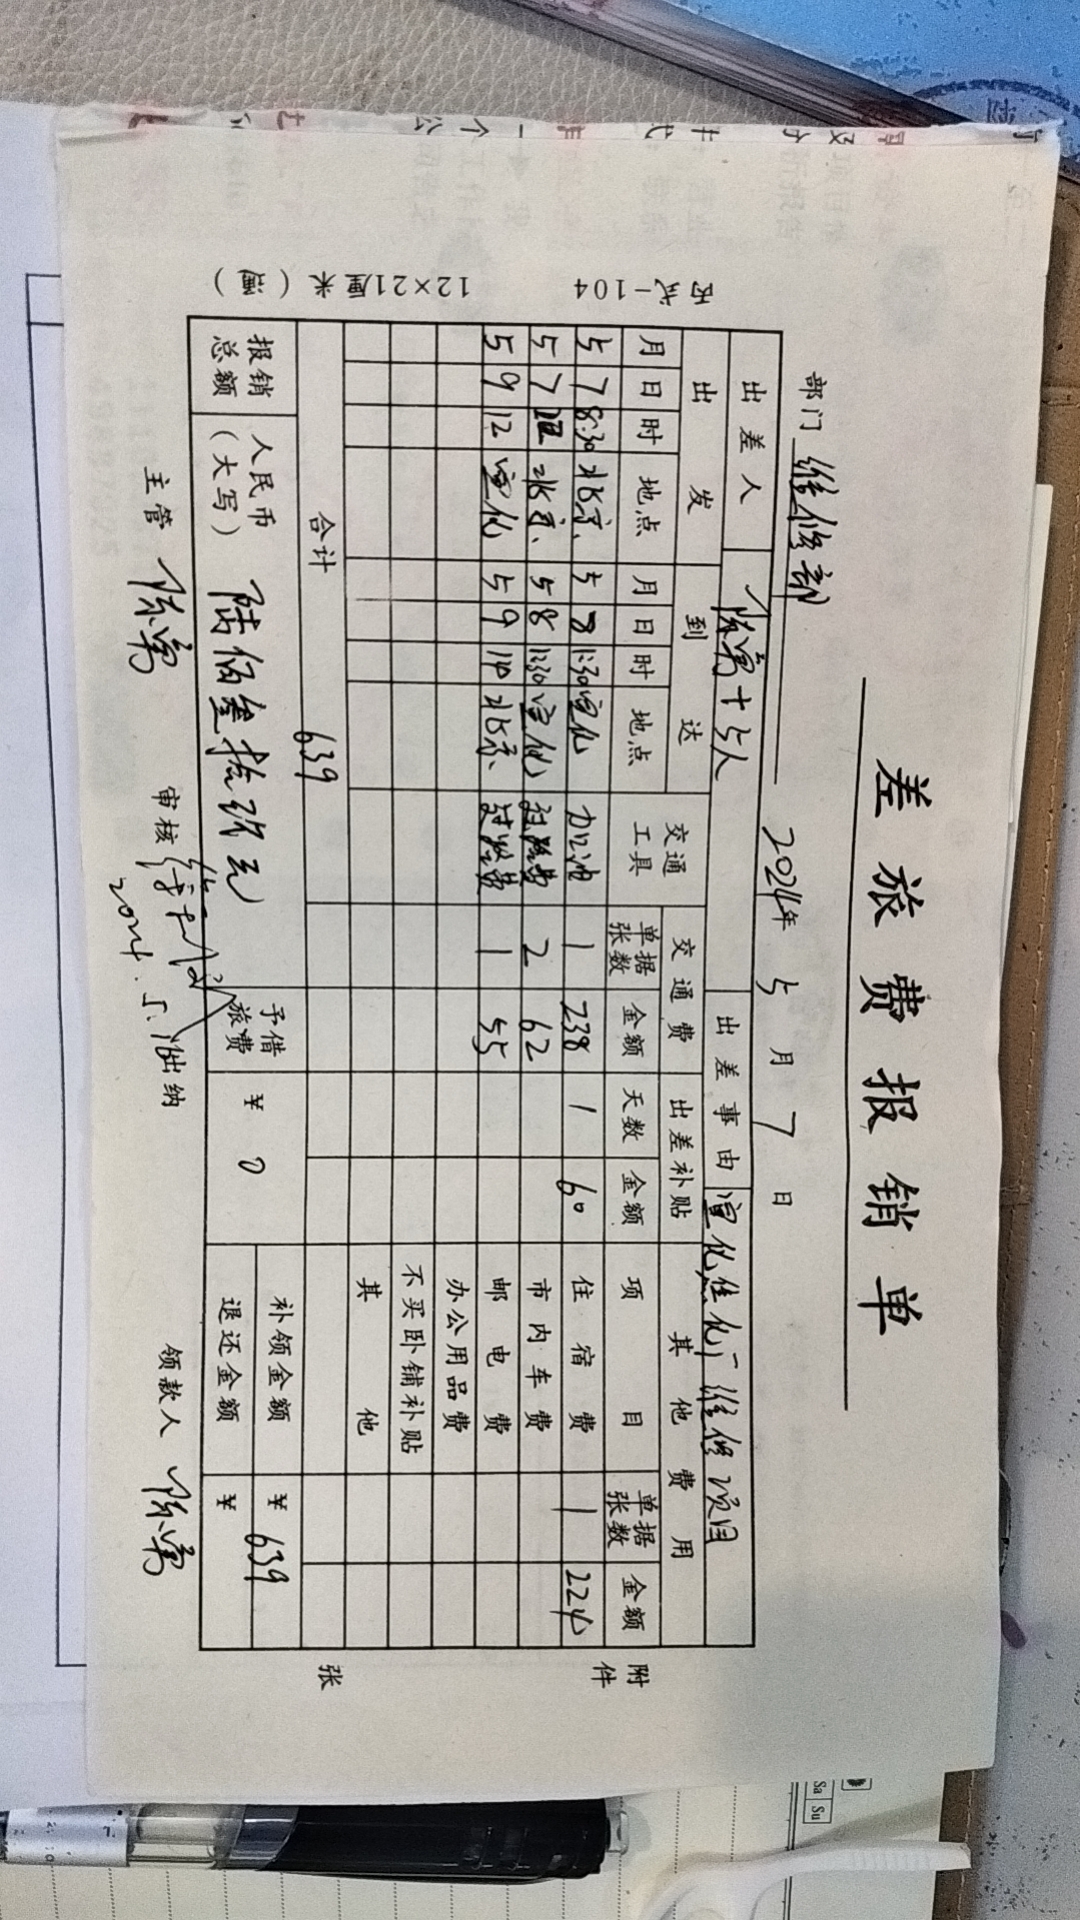 差旅费报销单
部门 维修部 2024年 5 月 7 日
出差人 陈勇十5人 出差事由 宣化焦化厂维修项目
出发 到达 交通工具 交通费 出差补贴 其他费用
月 日 时 地点 月 日 时 地点 单据张数 金额 天数 金额 项目 单据张数 金额
5 7 8:30 北京 5 1:30 宣化 加油 1 238 1 60 住宿费 1 224
5 7 北京 5 8 12:30 宣化 过路费 2 62 市内车费
5 9 12 宣化 5 9 北京 过路费 1 55 邮电费
办公用品费
不买卧铺补贴
其他
合计 639
报销总额 人民币(大写) 陆佰叁拾玖元 予借旅费 ¥ 0 补领金额 ¥ 639
退还金额 ¥
主管 陈勇 审核 出纳 领款人 陈勇
2024.5.
附件 张
丙式-104 12×21厘米
Sa Su